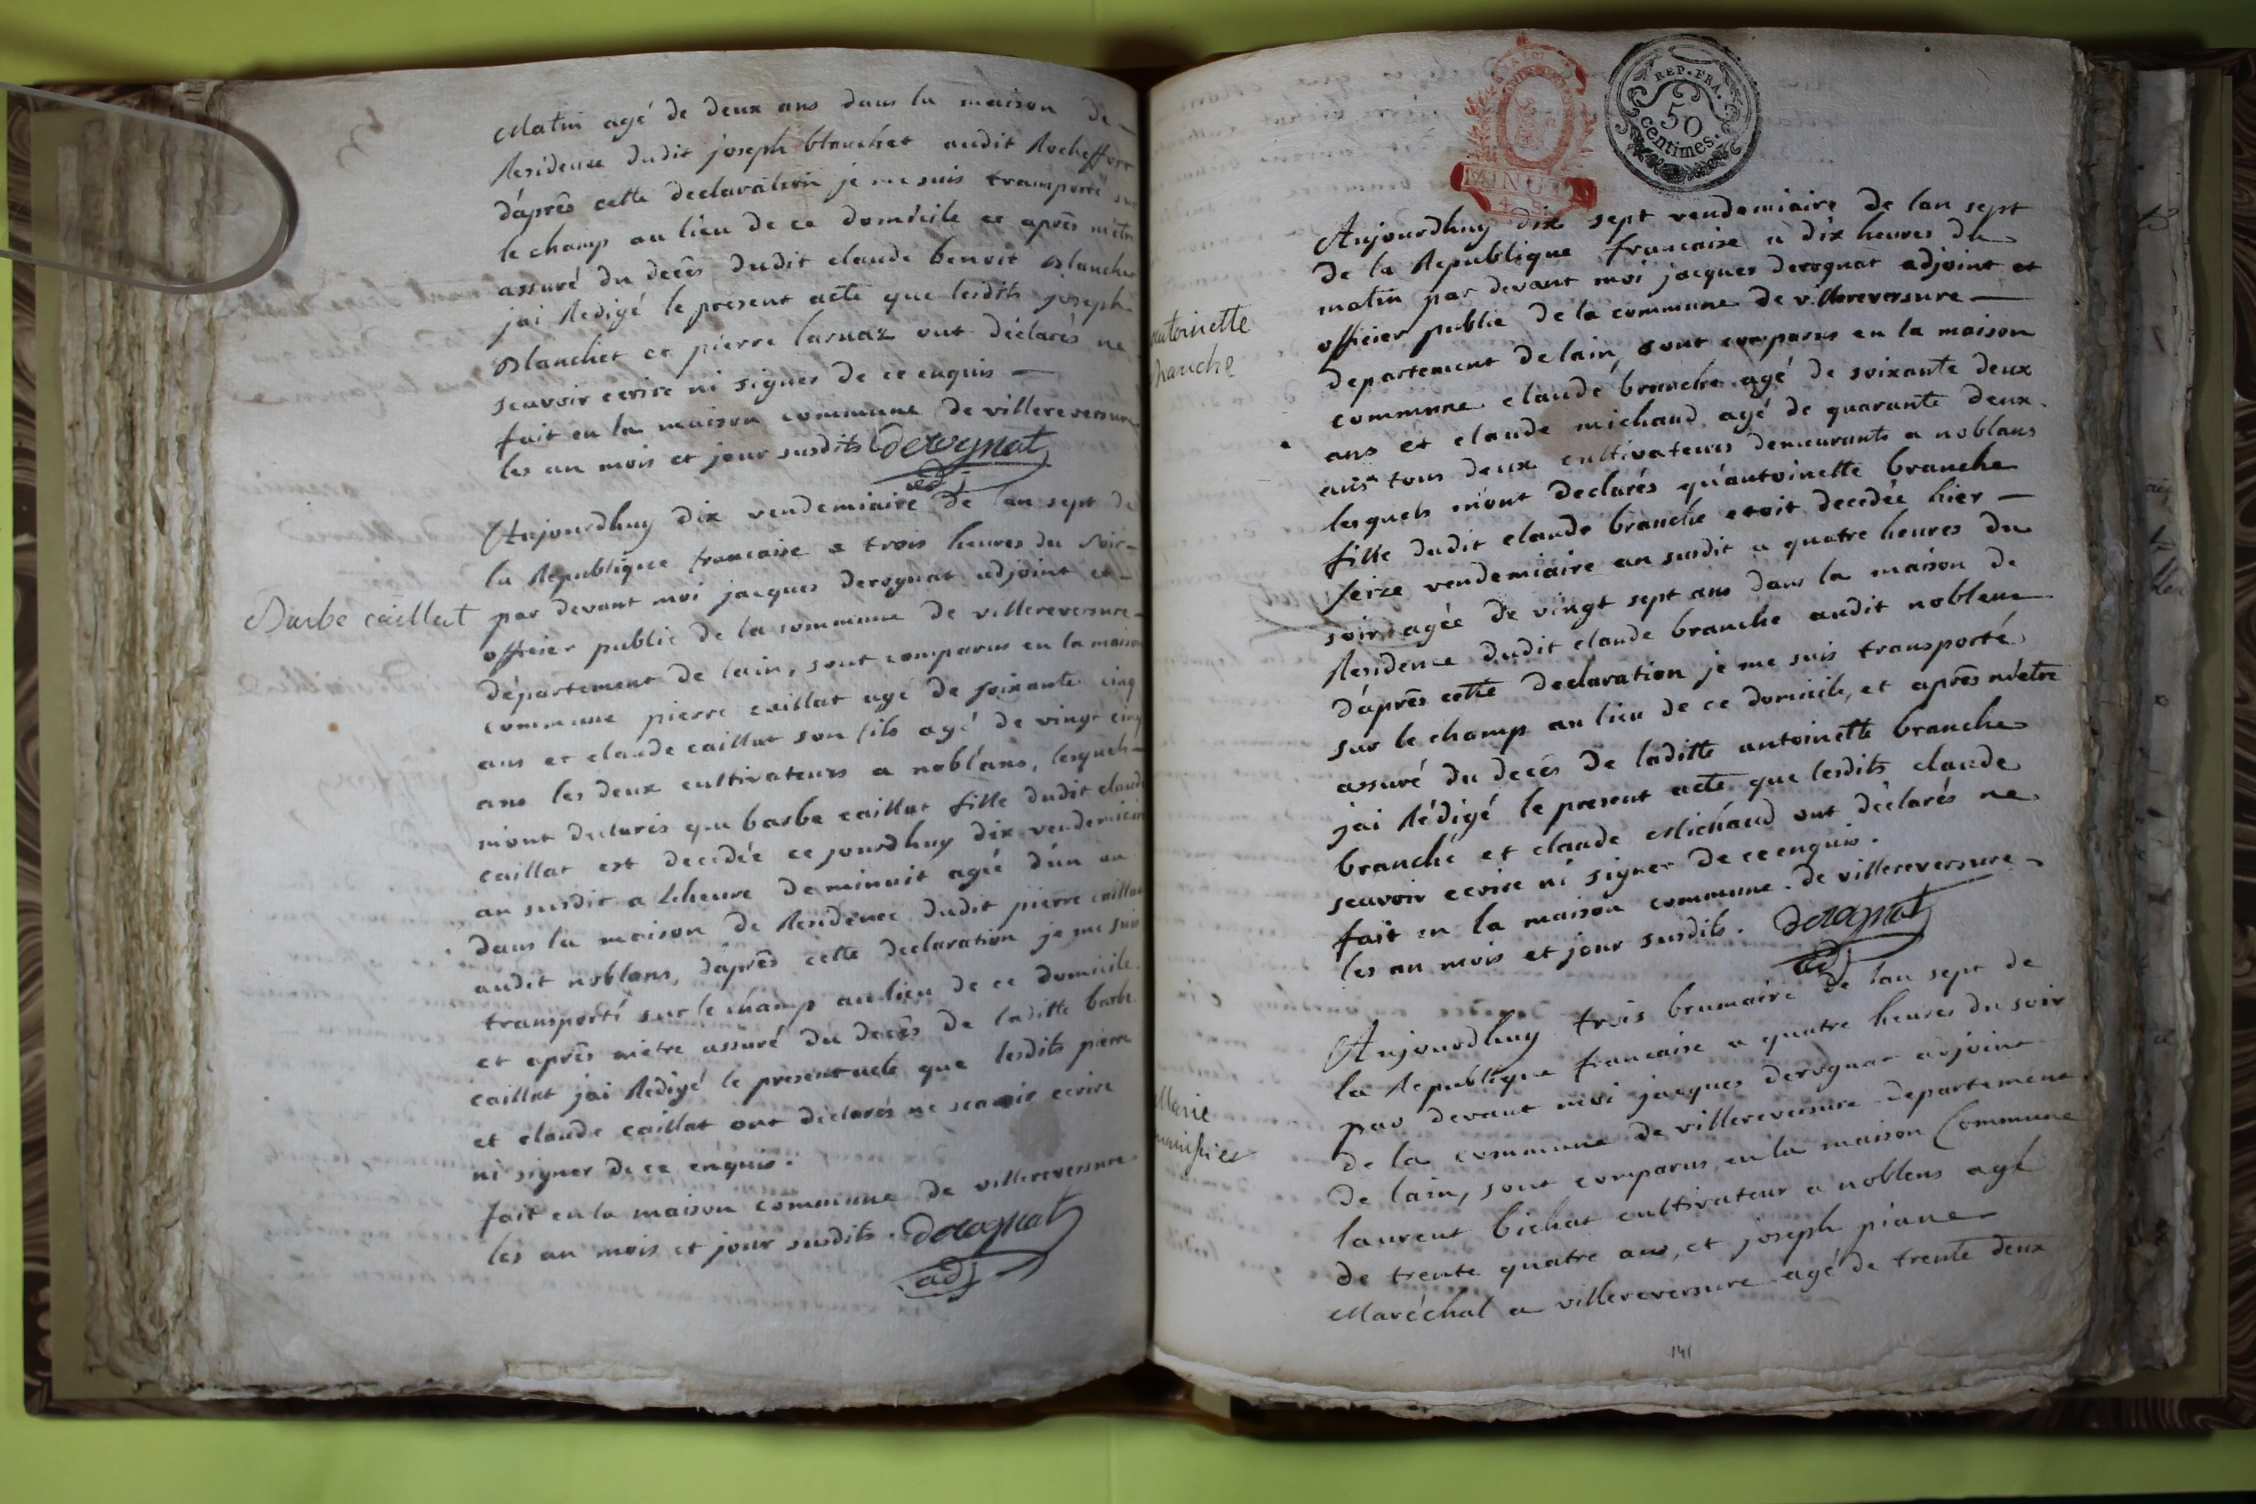 Matin agé de deux ans dans la maison de
Residence dudit joseph blanchet audit Rocheffort
d'aprês cette declaration je me suis transporté sur
le champ au lieu de ce domicile et aprês m'etre
assuré du decês dudit claude benoit blanchet
jai Redigé le present acte que lesdits joseph
Blanchet et pierre larnaz ont déclarés ne
scavoir ecrire ni signer de ce enquis
fait en la maison commune de villereversure
les an mois et jour susdits derognat
adj
Barbe caillat
Aujourdhuy dix vendemiaire de lan sept de
la Republique francaise a trois heures du soir
par devant moi jacques derognat adjoint et
officier public de la commune de villereversure
département de lain, sont comparus en la maison
commune pierre caillat agé de soixante cinq
ans et claude caillat son fils agé de vingt cinq
ans les deux cultivateurs a noblans, lesquels
m'ont declarés que barbe caillat fille dudit claude
caillat est decedée ce jourdhuy dix vendemiaire
an susdit a Lheure de minuit agée d'un an
dans la maison de Residence dudit pierre caillat
audit noblans, d'aprês cette declaration je me suis
transporté sur le champ au lieu de ce domicile
et aprês m'etre assuré du decês de laditte barbe
caillat jai Redigé le present acte que lesdits pierre
et claude caillat ont déclarés ne scavoir ecrire
ni signer de ce enquis.
fait en la maison commune de villereversure
les an mois et jour susdits. derognat
adj
REP. FRA.
50
centimes.
antoinette
branche
Aujourdhuy dix sept vendemiaire de lan sept
de la Republique francaise a dix heures du
matin par devant moi jacques derognat adjoint et
officier public de la commune de villereversure
departement de lain, sont comparus en la maison
commune claude branche agé de soixante deux
ans et claude michaud agé de quarante deux
ans tous deux cultivateurs demeurants a noblans
lesquels m'ont declarés qu'antoinette branche
fille dudit claude branche etoit decedée hier
seize vendemiaire an susdit a quatre heures du
soir agée de vingt sept ans dans la maison de
Residence dudit claude branche audit noblens
d'aprês cette declaration je me suis transporté
sur le champ au lieu de ce domicile, et aprês m'etre
assuré du decês de laditte antoinette branche
jai Rédigé le present acte que lesdits claude
branche et claude Michaud ont déclarés ne
scavoir ecrire ni signer de ce enquis.
fait en la maison commune de villereversure
les an mois et jour susdits. derognat
adj
Marie
Aujourdhuy trois brumaire de lan sept de
la Republique francaise a quatre heures du soir
par devant moi jacques derognat adjoint
de la commune de villereversure departement
de lain, sont comparus en la maison Commune
laurent bichat cultivateur a noblens agé
de trente quatre ans, et joseph piane
Maréchal a villereversure agé de trente deux
141